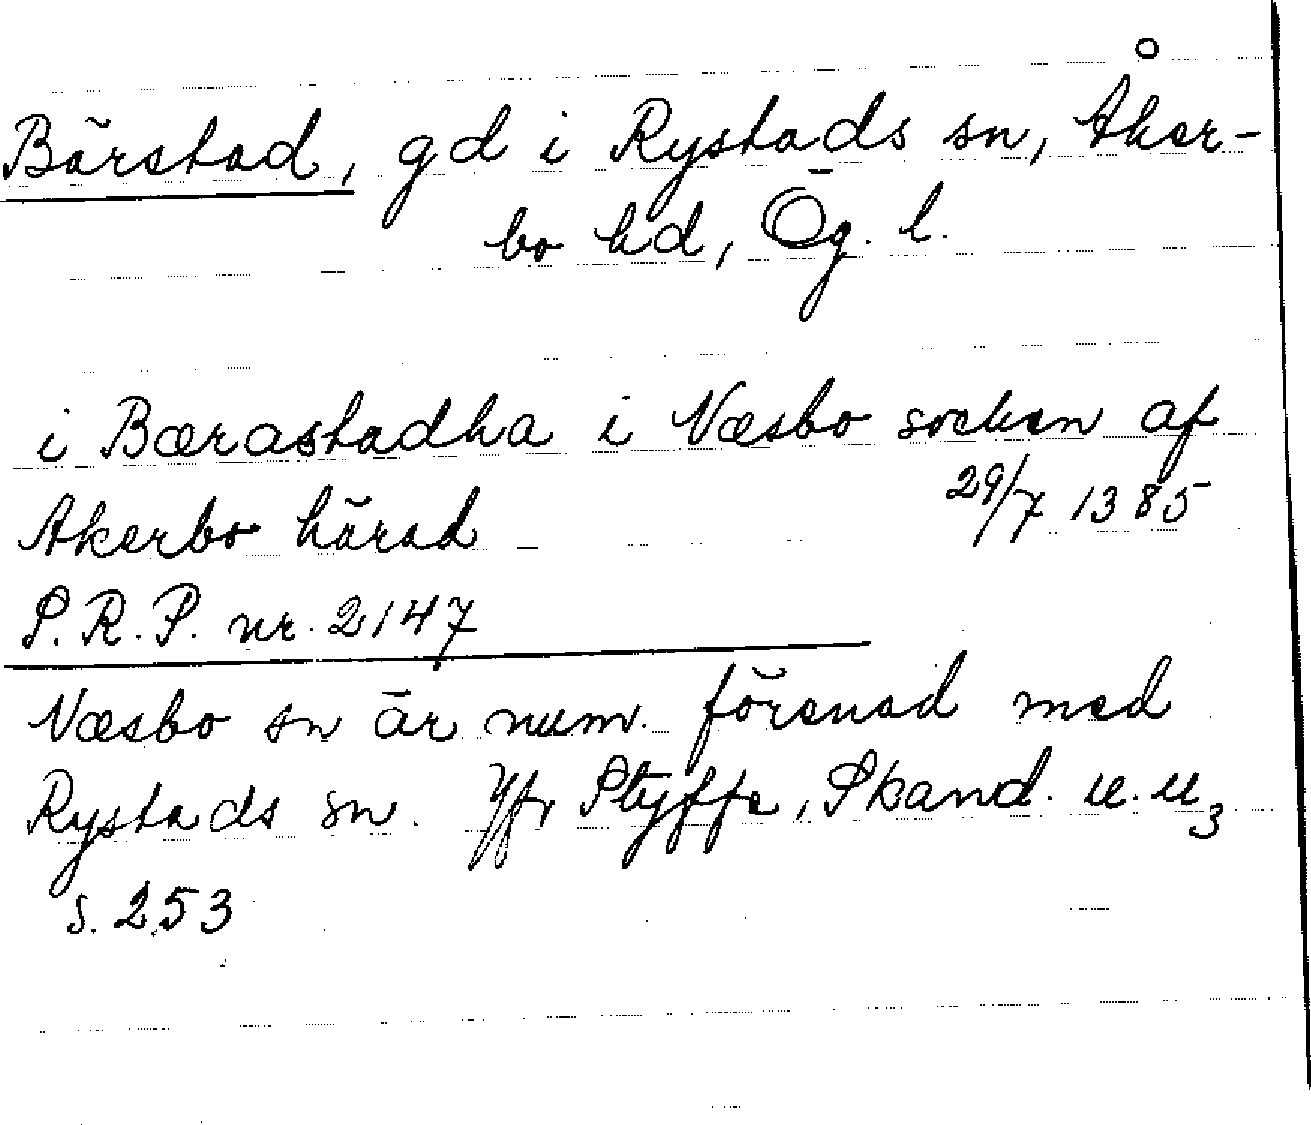 Bärstad, gd i Rystads sn, Åker-
bo hd, Ög. l.
i Bærastadha i Næsbo socken af
Akerbo härad 29/7 1385
S.R.P. nr. 2147
Næsbo sn är num. förenad med
Rystads sn. Jfr Styffe, Skand. u. u3
s. 253